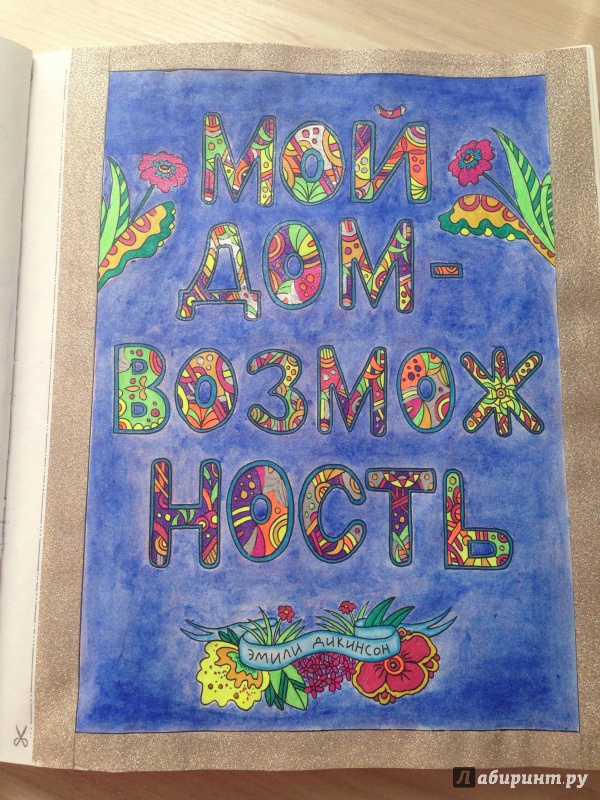 МОЙ
ДОМ-
ВОЗМОЖ
НОСТЬ
ЭМИЛИ ДИКИНСОН
Лабиринт.ру